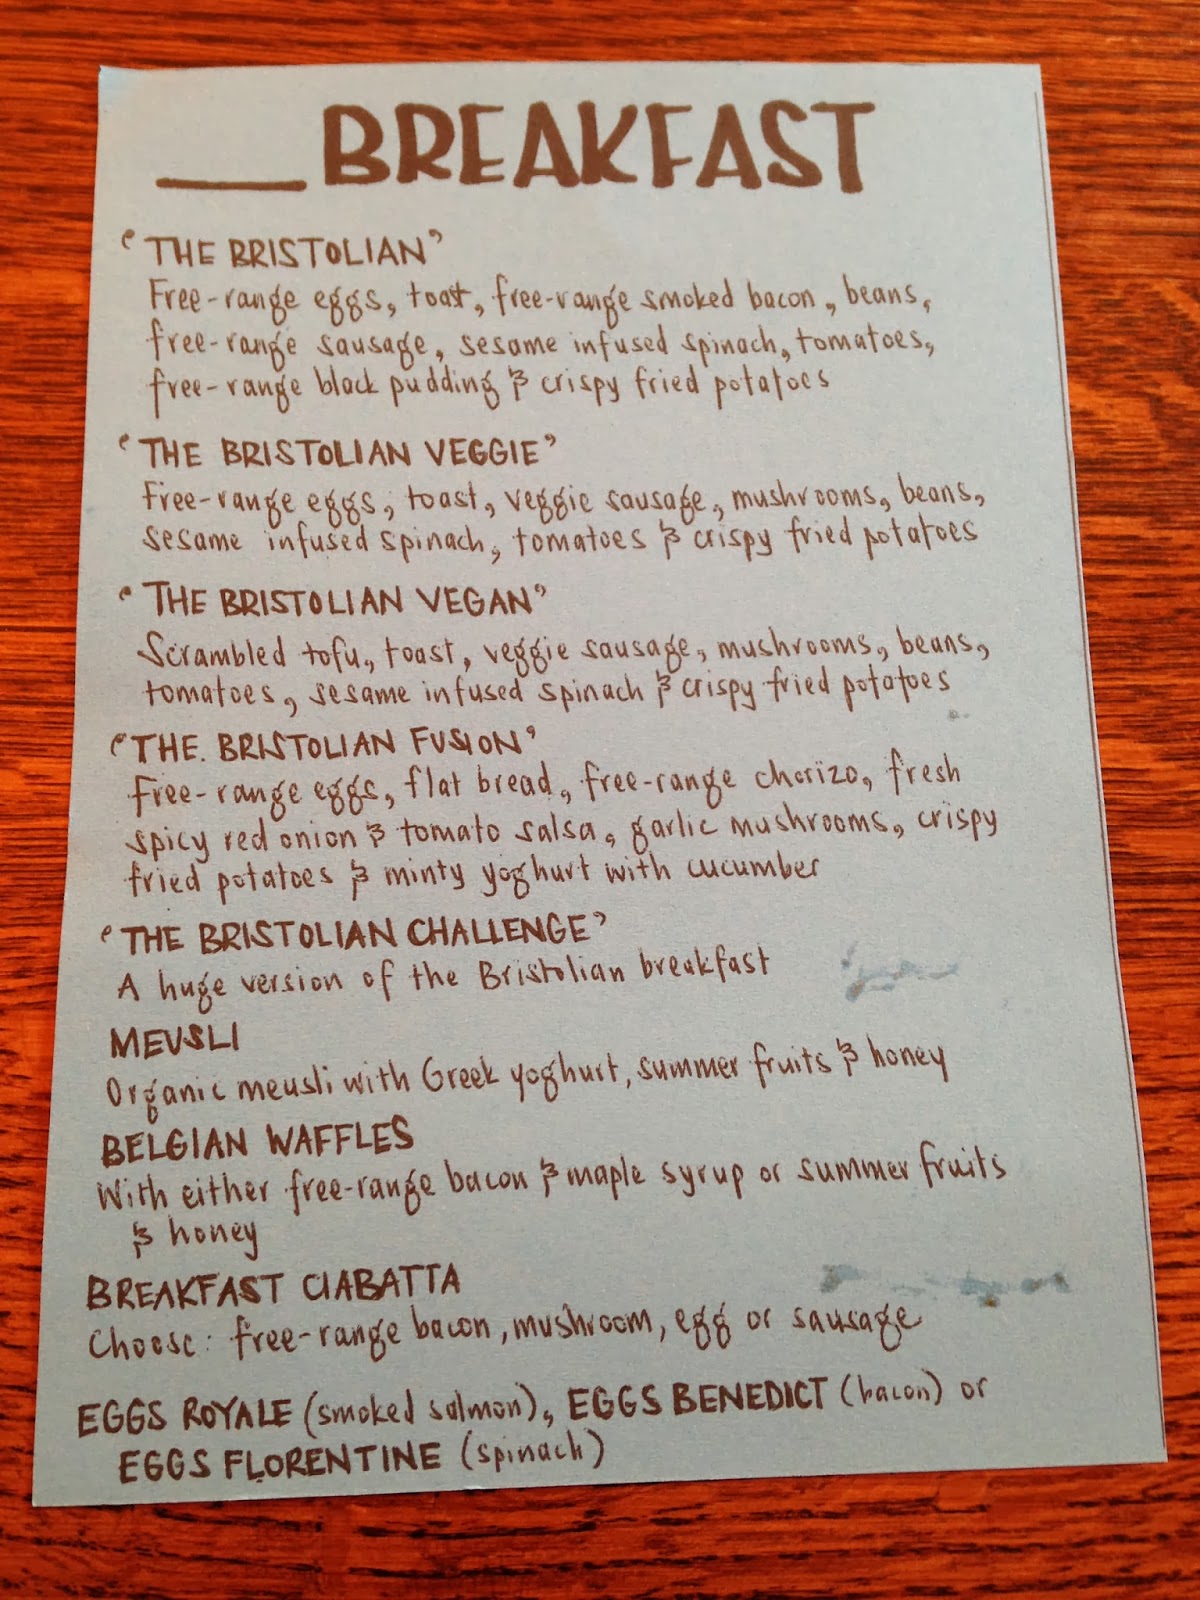 BREAKFAST
'THE BRISTOLIAN'
Free-range eggs, toast, free-range smoked bacon, beans,
free-range sausage, sesame infused spinach, tomatoes,
free-range black pudding & crispy fried potatoes
'THE BRISTOLIAN VEGGIE'
Free-range eggs, toast, veggie sausage, mushrooms, beans,
sesame infused spinach, tomatoes & crispy fried potatoes
'THE BRISTOLIAN VEGAN'
Scrambled tofu, toast, veggie sausage, mushrooms, beans,
tomatoes, sesame infused spinach & crispy fried potatoes
'THE BRISTOLIAN FUSION'
Free-range eggs, flat bread, free-range chorizo, fresh
spicy red onion & tomato salsa, garlic mushrooms, crispy
fried potatoes & minty yoghurt with cucumber
'THE BRISTOLIAN CHALLENGE'
A huge version of the Bristolian breakfast
MEUSLI
Organic meusli with Greek yoghurt, summer fruits & honey
BELGIAN WAFFLES
With either free-range bacon & maple syrup or summer fruits
& honey
BREAKFAST CIABATTA
Choose: free-range bacon, mushroom, egg or sausage
EGGS ROYALE (smoked salmon), EGGS BENEDICT (bacon) or
EGGS FLORENTINE (spinach)